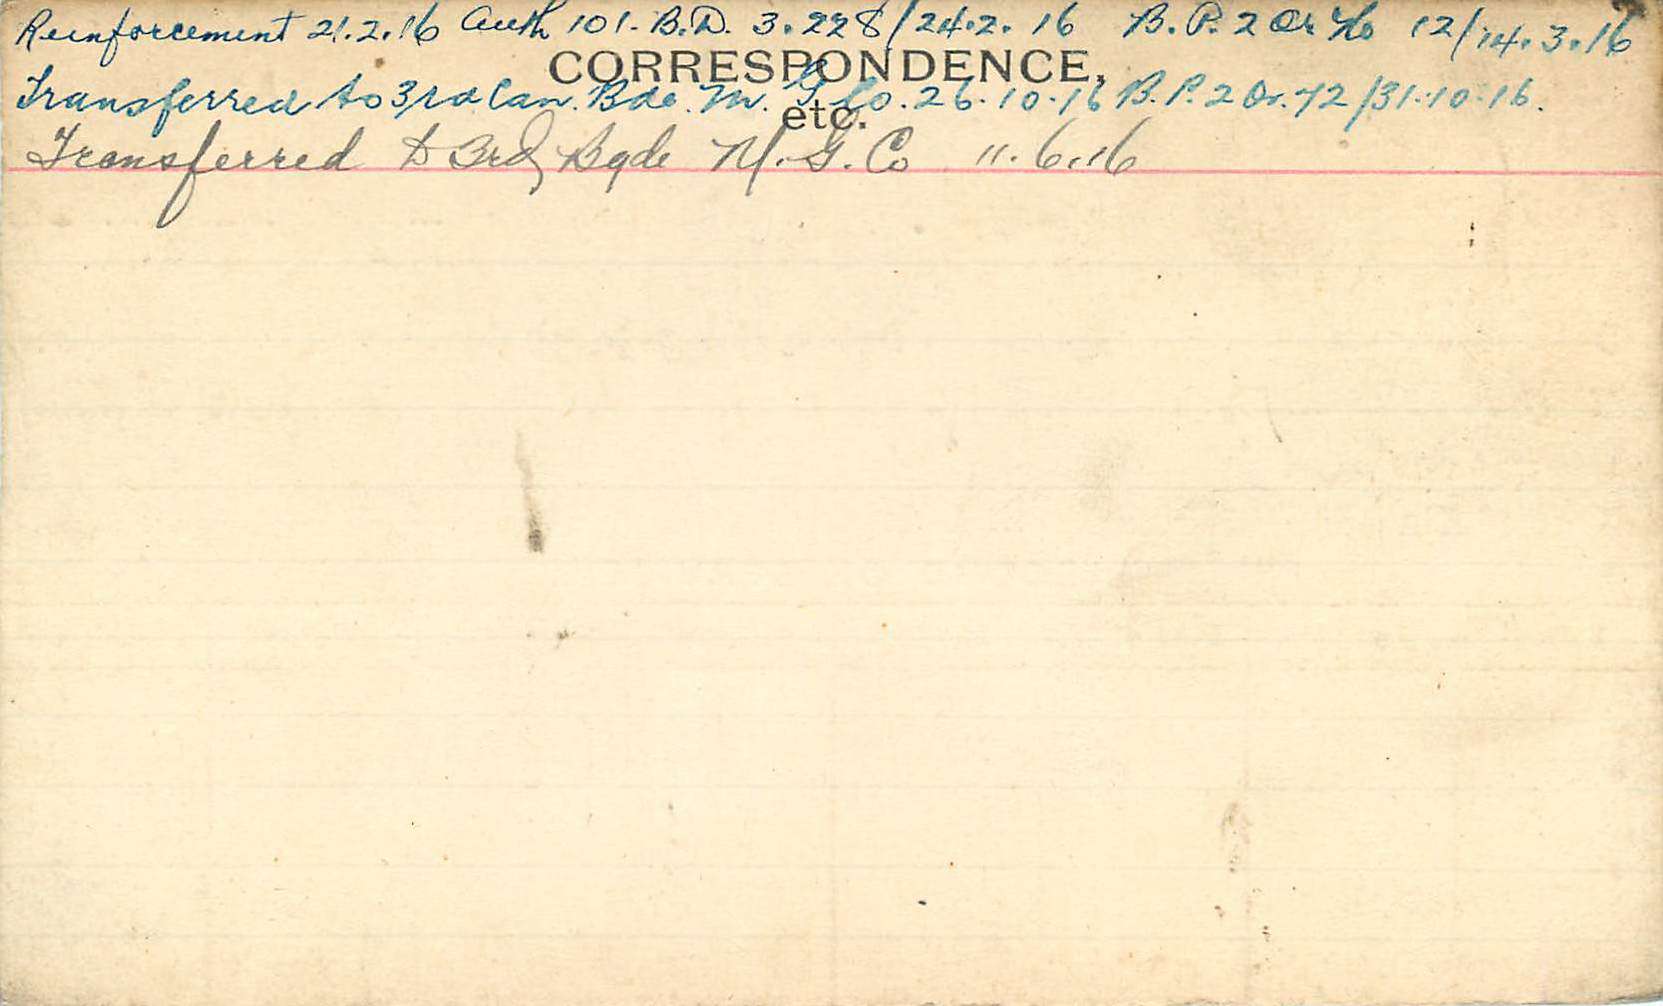 Reinforcement 21.2.16 Auth 101. B.D. 3.228/24.2.16 B.P. 2 Or No 12/14.3.16
CORRESPONDENCE,
Transferred to 3rd Can. Bde. M. G. Co. 26.10.16 B.P. 2 Or. 72/31.10.16.
etc.
Transferred to 3rd Bgde M.G. Co 11.6.16